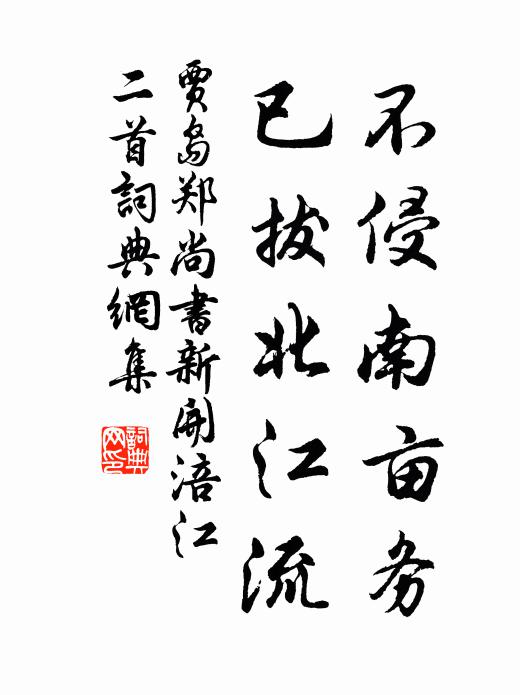 不侵南亩务
已拔北江流
贾岛郑尚书新开涪江
二首詞典網集
詞典
网印